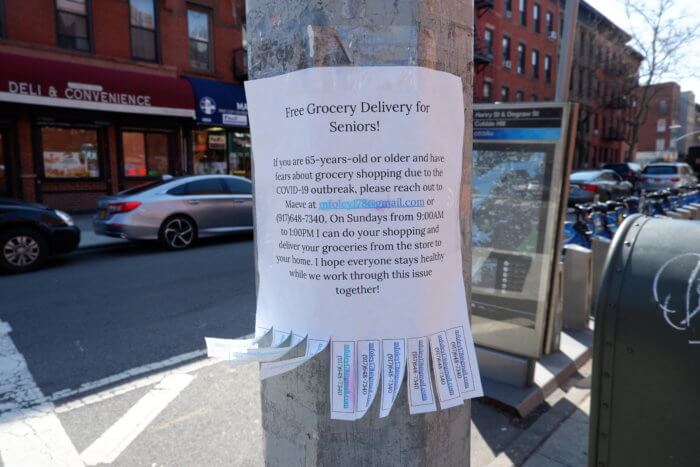 DELI & CONVENIENCE
Free Grocery Delivery for
Seniors!
If you are 65-years-old or older and have
fears about grocery shopping due to the
COVID-19 outbreak, please reach out to
Maeve at mfoley178@gmail.com or
(917)648-7340. On Sundays from 9:00AM
to 1:00PM I can do your shopping and
deliver your groceries from the store to
your home. I hope everyone stays healthy
while we work through this issue
together!
Henry St & Degraw St
Cobble Hill
citibike
mfoley178@gmail.com
(917)648-7340
mfoley178@gmail.com
(917)648-7340
mfoley178@gmail.com
(917)648-7340
mfoley178@gmail.com
(917)648-7340
mfoley178@gmail.com
(917)648-7340
mfoley178@gmail.com
(917)648-7340